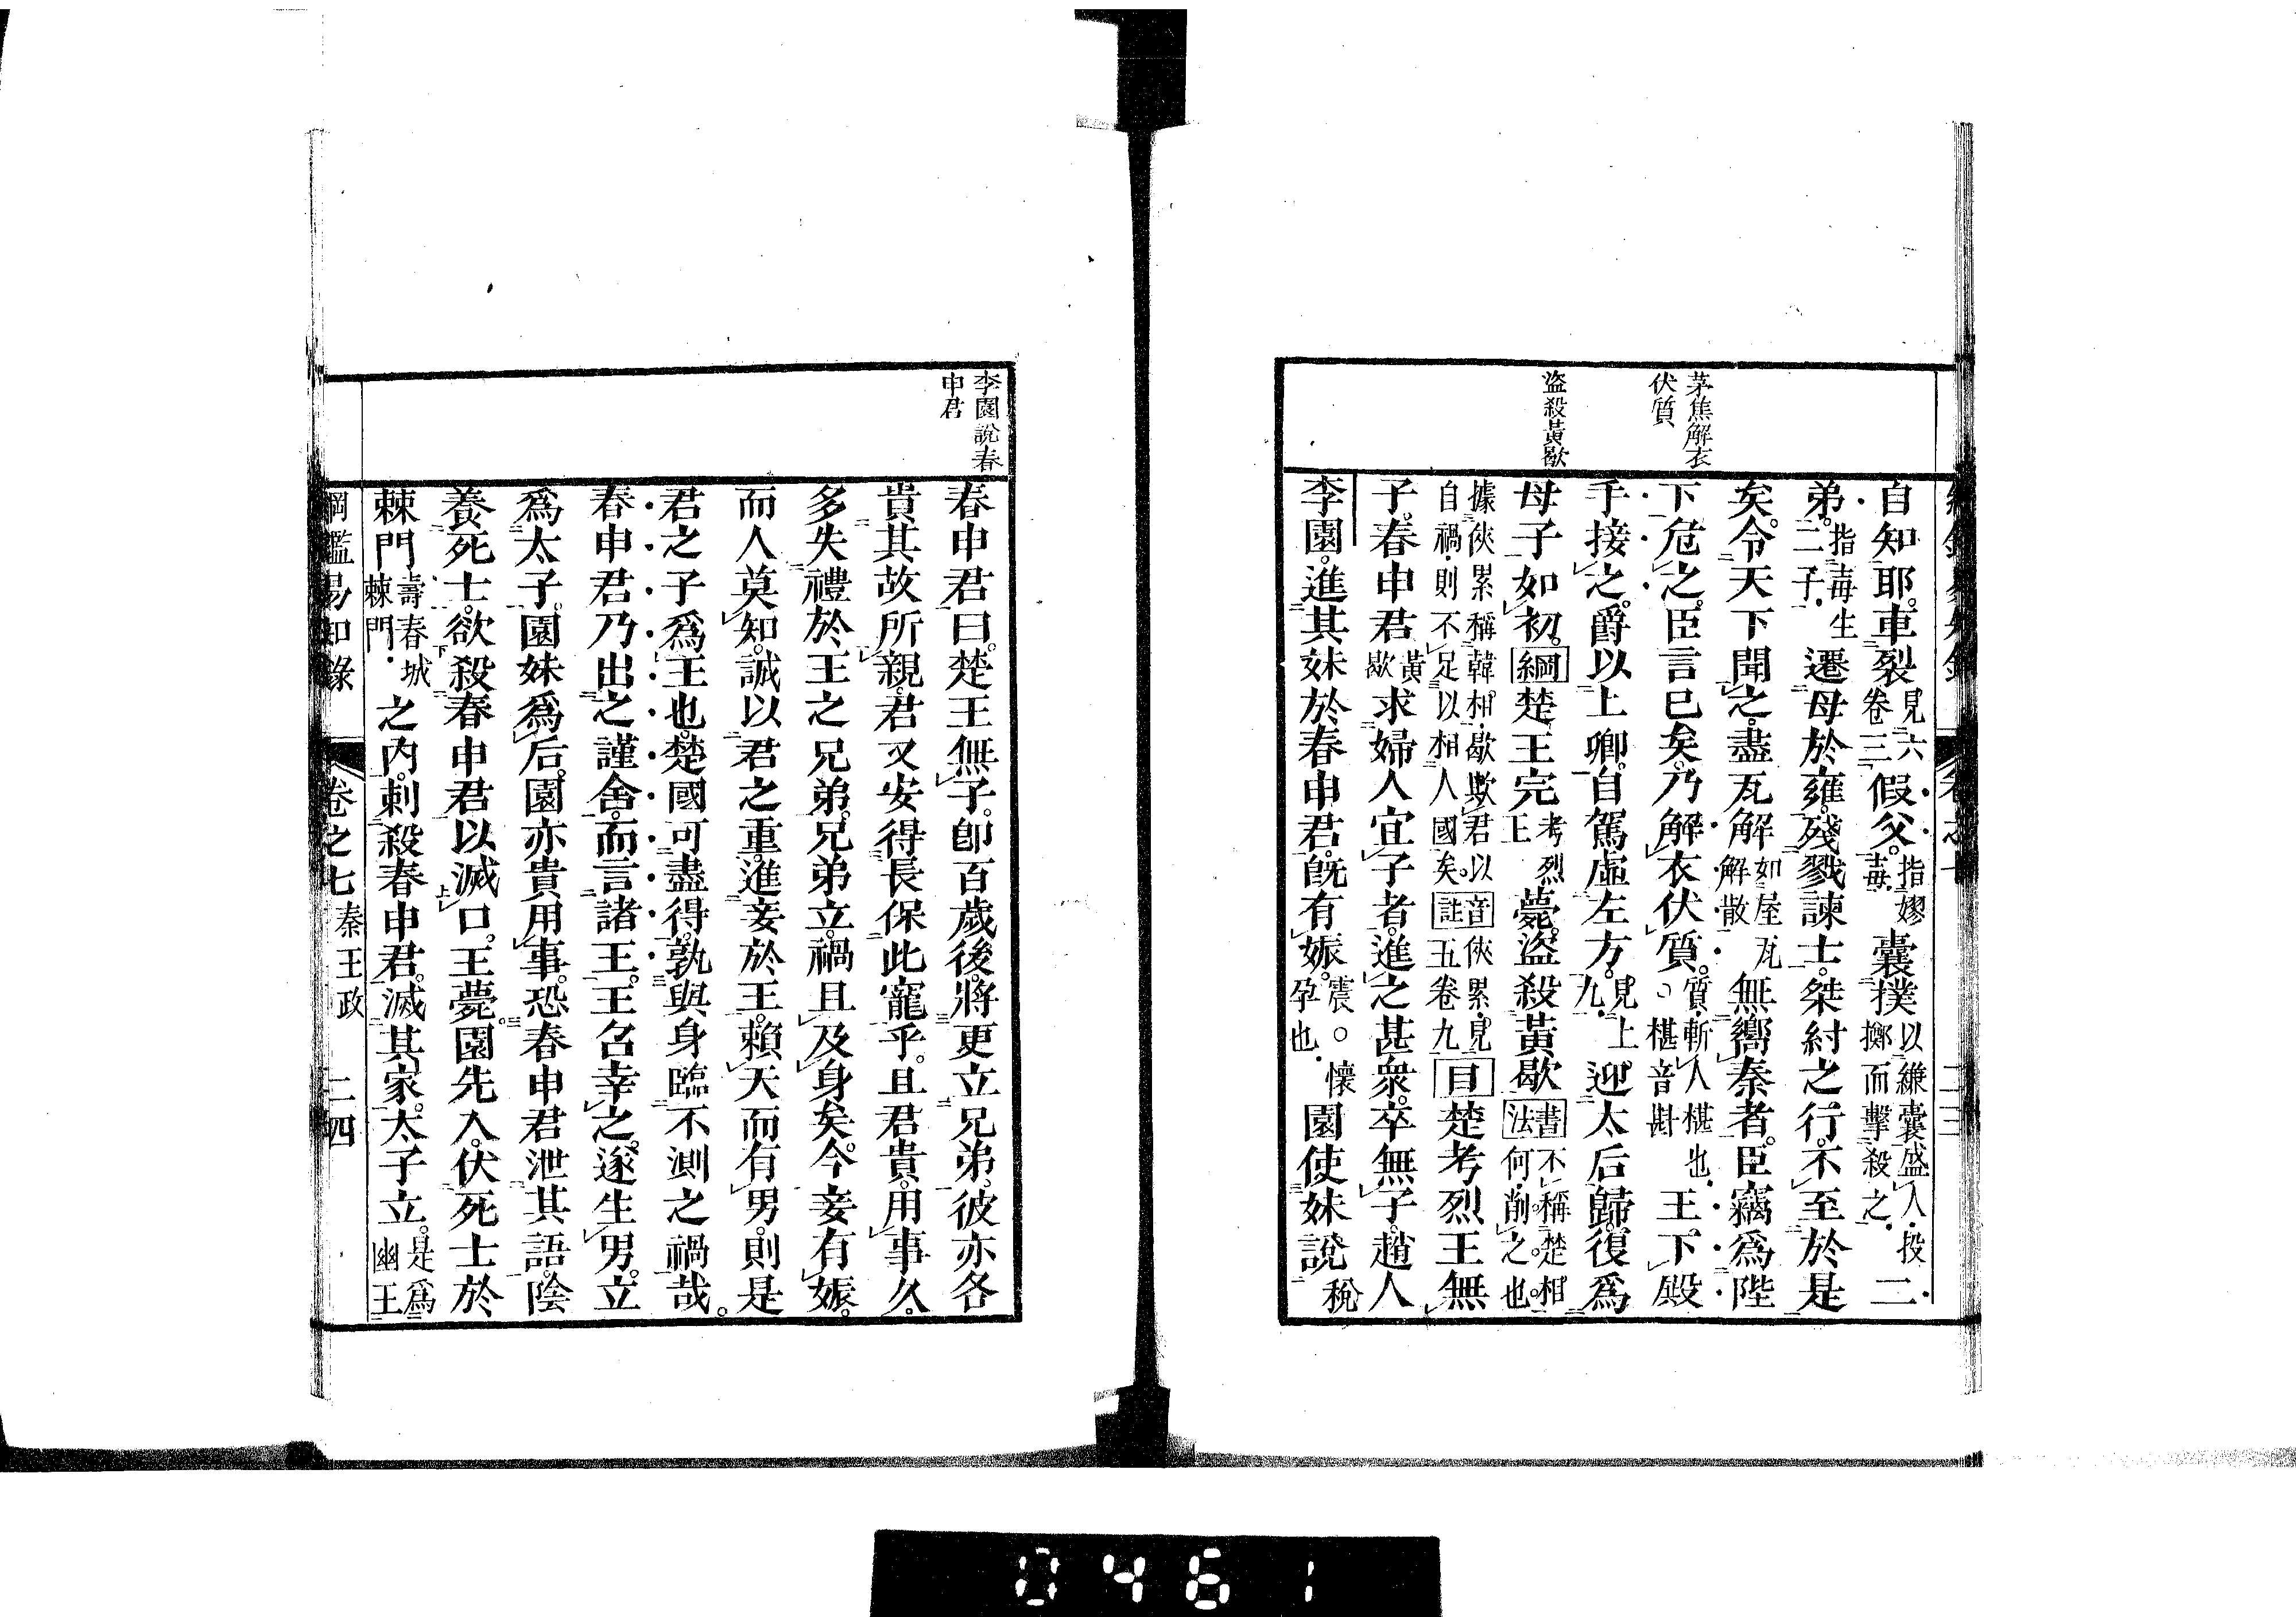 茅焦解衣
伏質
盜殺黃歇
自知耶。車裂見六卷三假父。指嫪毐囊撲以維囊盛人投擲而擊殺之二
弟。指毐生二子遷母於雍。殘戮諫士。桀紂之行。不至於是
矣。令天下聞之。盡瓦解如屋瓦解散無嚮秦者。臣竊爲陛
下危之。臣言已矣。乃解衣伏質。質斬人椹也○椹音斟王下殿
手接之。爵以上卿。自駕虛左方。見上九迎太后歸。復爲
母子如初。綱楚王完考烈王薨。盜殺黃歇書法不稱楚相何。削之也。
據俠累稱韓相。歇欺君以自禍。則不足以相人國矣。音註俠累見五卷九目楚考烈王無
子。春申君黃歇求婦人宜子者。進之甚衆。卒無子。趙人
李園。進其妹於春申君。旣有娠。震○懷孕也園使妹說稅
李園說春
申君
春申君曰。楚王無子。卽百歲後。將更立兄弟。彼亦各
貴其故所親。君又安得長保此寵乎。且君貴。用事久。
多失禮於王之兄弟。兄弟立。禍且及身矣。今妾有娠。
而人莫知。誠以君之重。進妾於王。賴天而有男。則是
君之子爲王也。楚國可盡得。孰與身臨不測之禍哉。
春申君乃出之謹舍。而言諸王。王召幸之。遂生男。立
爲太子。園妹爲后。園亦貴用事。恐春申君泄其語。陰
養死士。欲殺春申君以滅口。王薨。園先入。伏死士於
棘門壽春城棘門之內。刺殺春申君。滅其家。太子立。是爲幽王
綱鑑易知錄 卷之七 秦王政 二四
0461